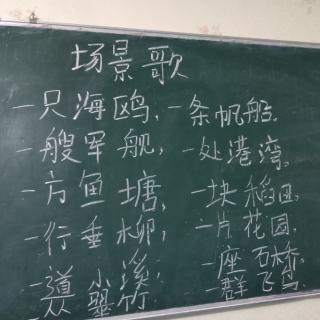 场景歌
一只海鸥,一条帆船。
一艘军舰,一处港湾。
一方鱼塘,一块稻田,
一行垂柳,一片花园。
一道小溪,一座石桥,
一丛翠竹,一群飞鸟。